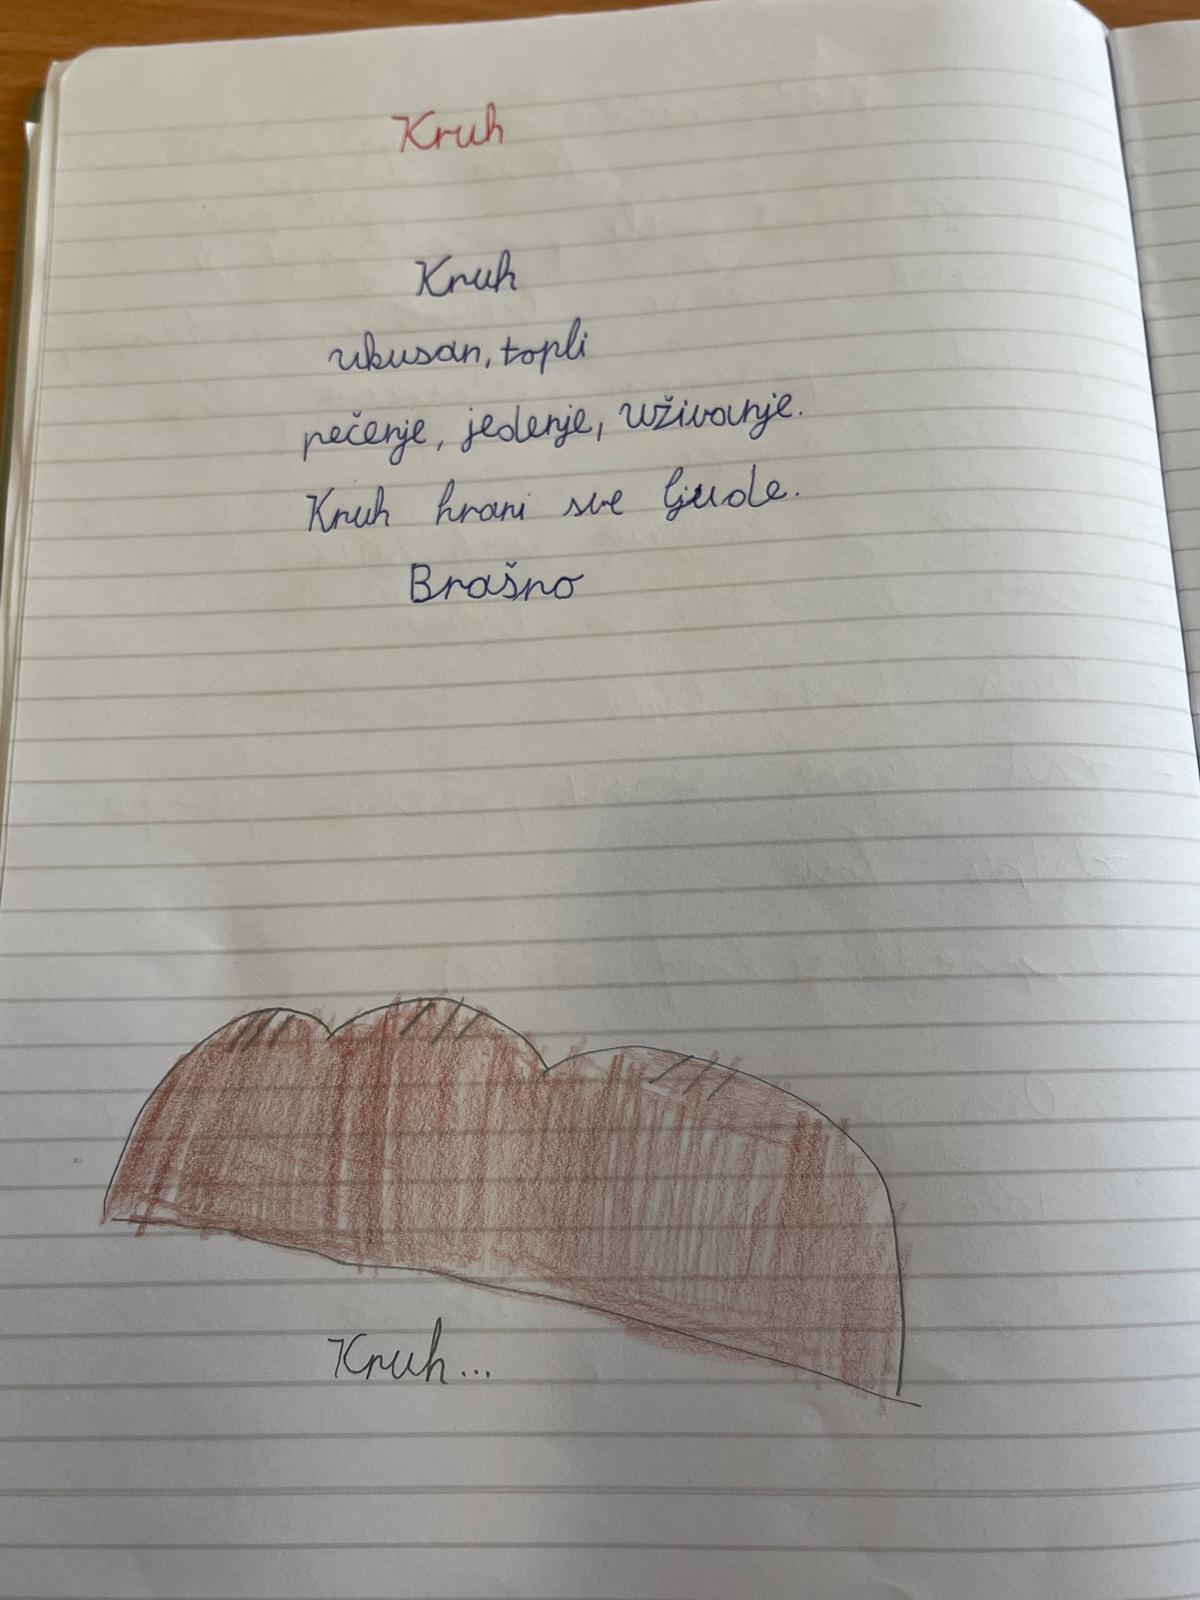 Kruh
Kruh
ukusan, topli
pečenje, jedenje, uživanje.
Kruh hrani sve ljude.
Brašno
Kruh...